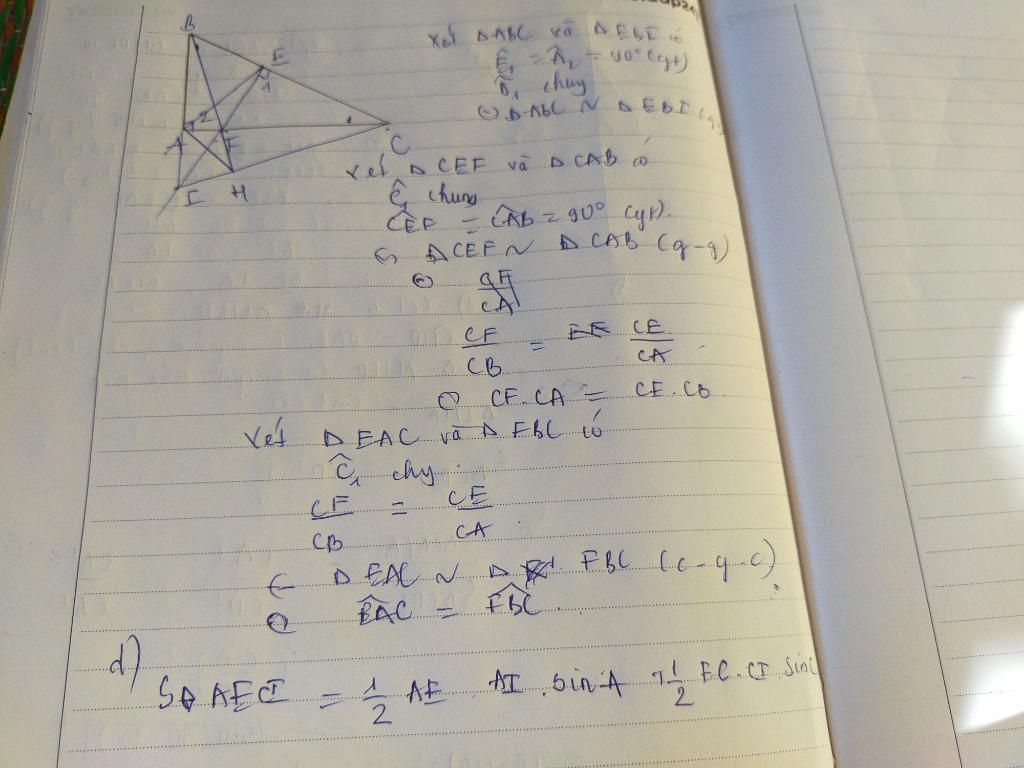 B
E
1
2
A
F
C
I
H
Xét Δ ABC và Δ EBI có
Ê₁ = Â₂ = 90° (gt)
chung
Δ ABC ~ Δ EBI
Xét Δ CEF và Δ CAB có
Ĉ₁ chung
CEF = CAB = 90° (gt).
Δ CEF ~ Δ CAB (g-g)
CA
CF/CB = CE/CA
CF.CA = CE.CB
Xét Δ EAC và Δ FBC có
Ĉ₁ chg
CF/CB = CE/CA
Δ EAC ~ Δ FBC (c-g-c)
EAC = FBC.
d)
SΔ AECI = 1/2 AE . AI . sin A + 1/2 EC . CI sin